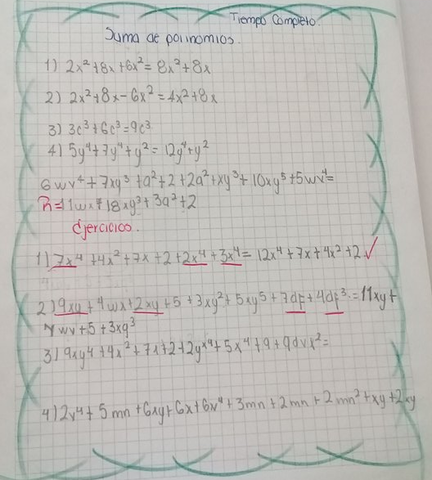 Tiempo Completo.
Suma de polinomios.
1) 2x²+8x+6x²=8x²+8x
2) 2x²+8x-6x²=4x²+8x
3) 3c³+6c³=9c³
4) 5y⁴+7y⁴+y²=12y⁴+y²
6wv⁴+7xy³+a²+2+2a²+xy³+10xy⁵+5wv⁴=
18xy³+3a²+2
Ejercicios.
1) 7x⁴+4x²+7x+2+2x⁴+3x⁴=12x⁴+7x+4x²+2 ✓
2) 9xy+4wx+2xy+5+3xy²+5xy⁵+7df+4df³=11xy+
wv+5+3xq³
3) 9xy⁴+4x²+7x+2+2y^x⁴+5x⁴+9+9dvx²=
4) 2v⁴+5mn+6xy+6x+6v⁴+3mn+2mn+2mn²+xy+2xy